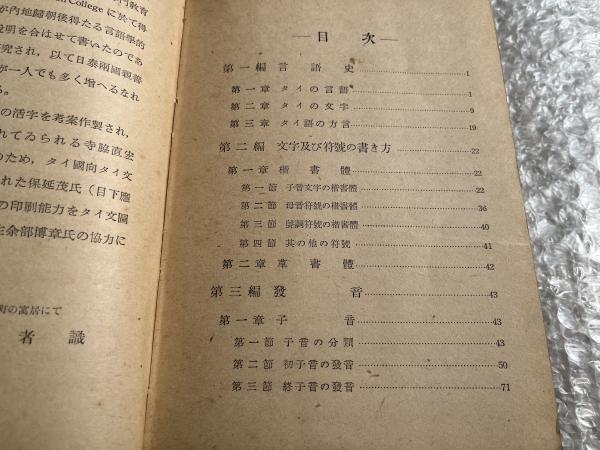 門教育
n College に於て得
が內地歸朝後得たる言語學的
說明を合はせて書いたのであ
究され，以て日泰兩國親善
が一人でも多く增へるなれ
る。
の活字を考案作製され，
れてゐられる寺脇直宏
のため，タイ國向タイ文
れた保延茂氏（目下應
の印刷能力をタイ文圖
余部博章氏の協力に
町の寓居にて
者 識
―目 次―
第一編 言語史 1
第一章 タイの言語 1
第二章 タイの文字 9
第三章 タイ語の方言 19
第二編 文字及び符號の書き方 22
第一章 楷書體 22
第一節 子音文字の楷書體 22
第二節 母音符號の楷書體 36
第三節 聲調符號の楷書體 40
第四節 其の他の符號 41
第二章 草書體 42
第三編 發音 43
第一章 子音 43
第一節 子音の分類 43
第二節 初子音の發音 50
第三節 終子音の發音 71